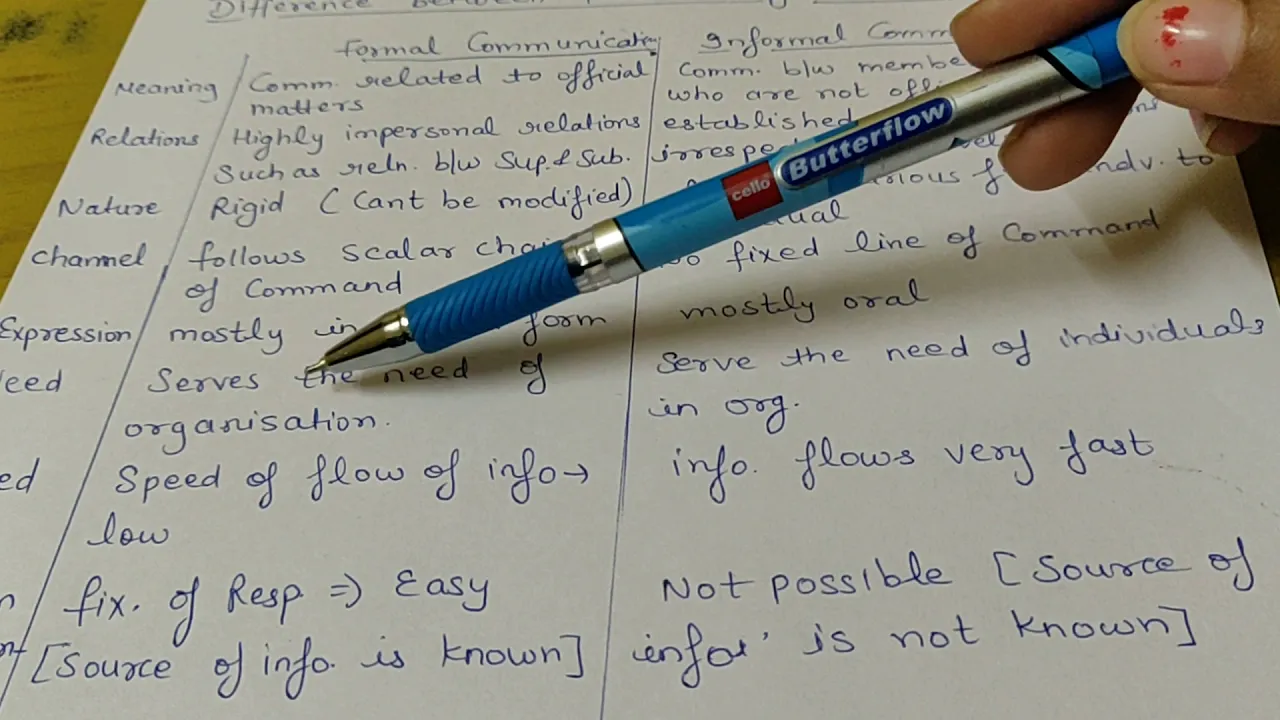 Difference between
Formal Communication Informal Comm
Meaning Comm. related to official Comm. b/w membe
matters who are not offi
Relations Highly impersonal relations established
Such as reln. b/w Sup. & Sub. irrespe
Nature Rigid (Cant be modified) indv. to
Channel follows scalar chai fixed line of Command
of Command
Expression mostly in form mostly oral
eed Serves the need of Serve the need of individuals
organisation. in org.
ed Speed of flow of info → info. flows very fast
low
fix. of Resp ⇒ Easy Not possible [Source of
[Source of info. is known] infor is not known]
cello Butterflow